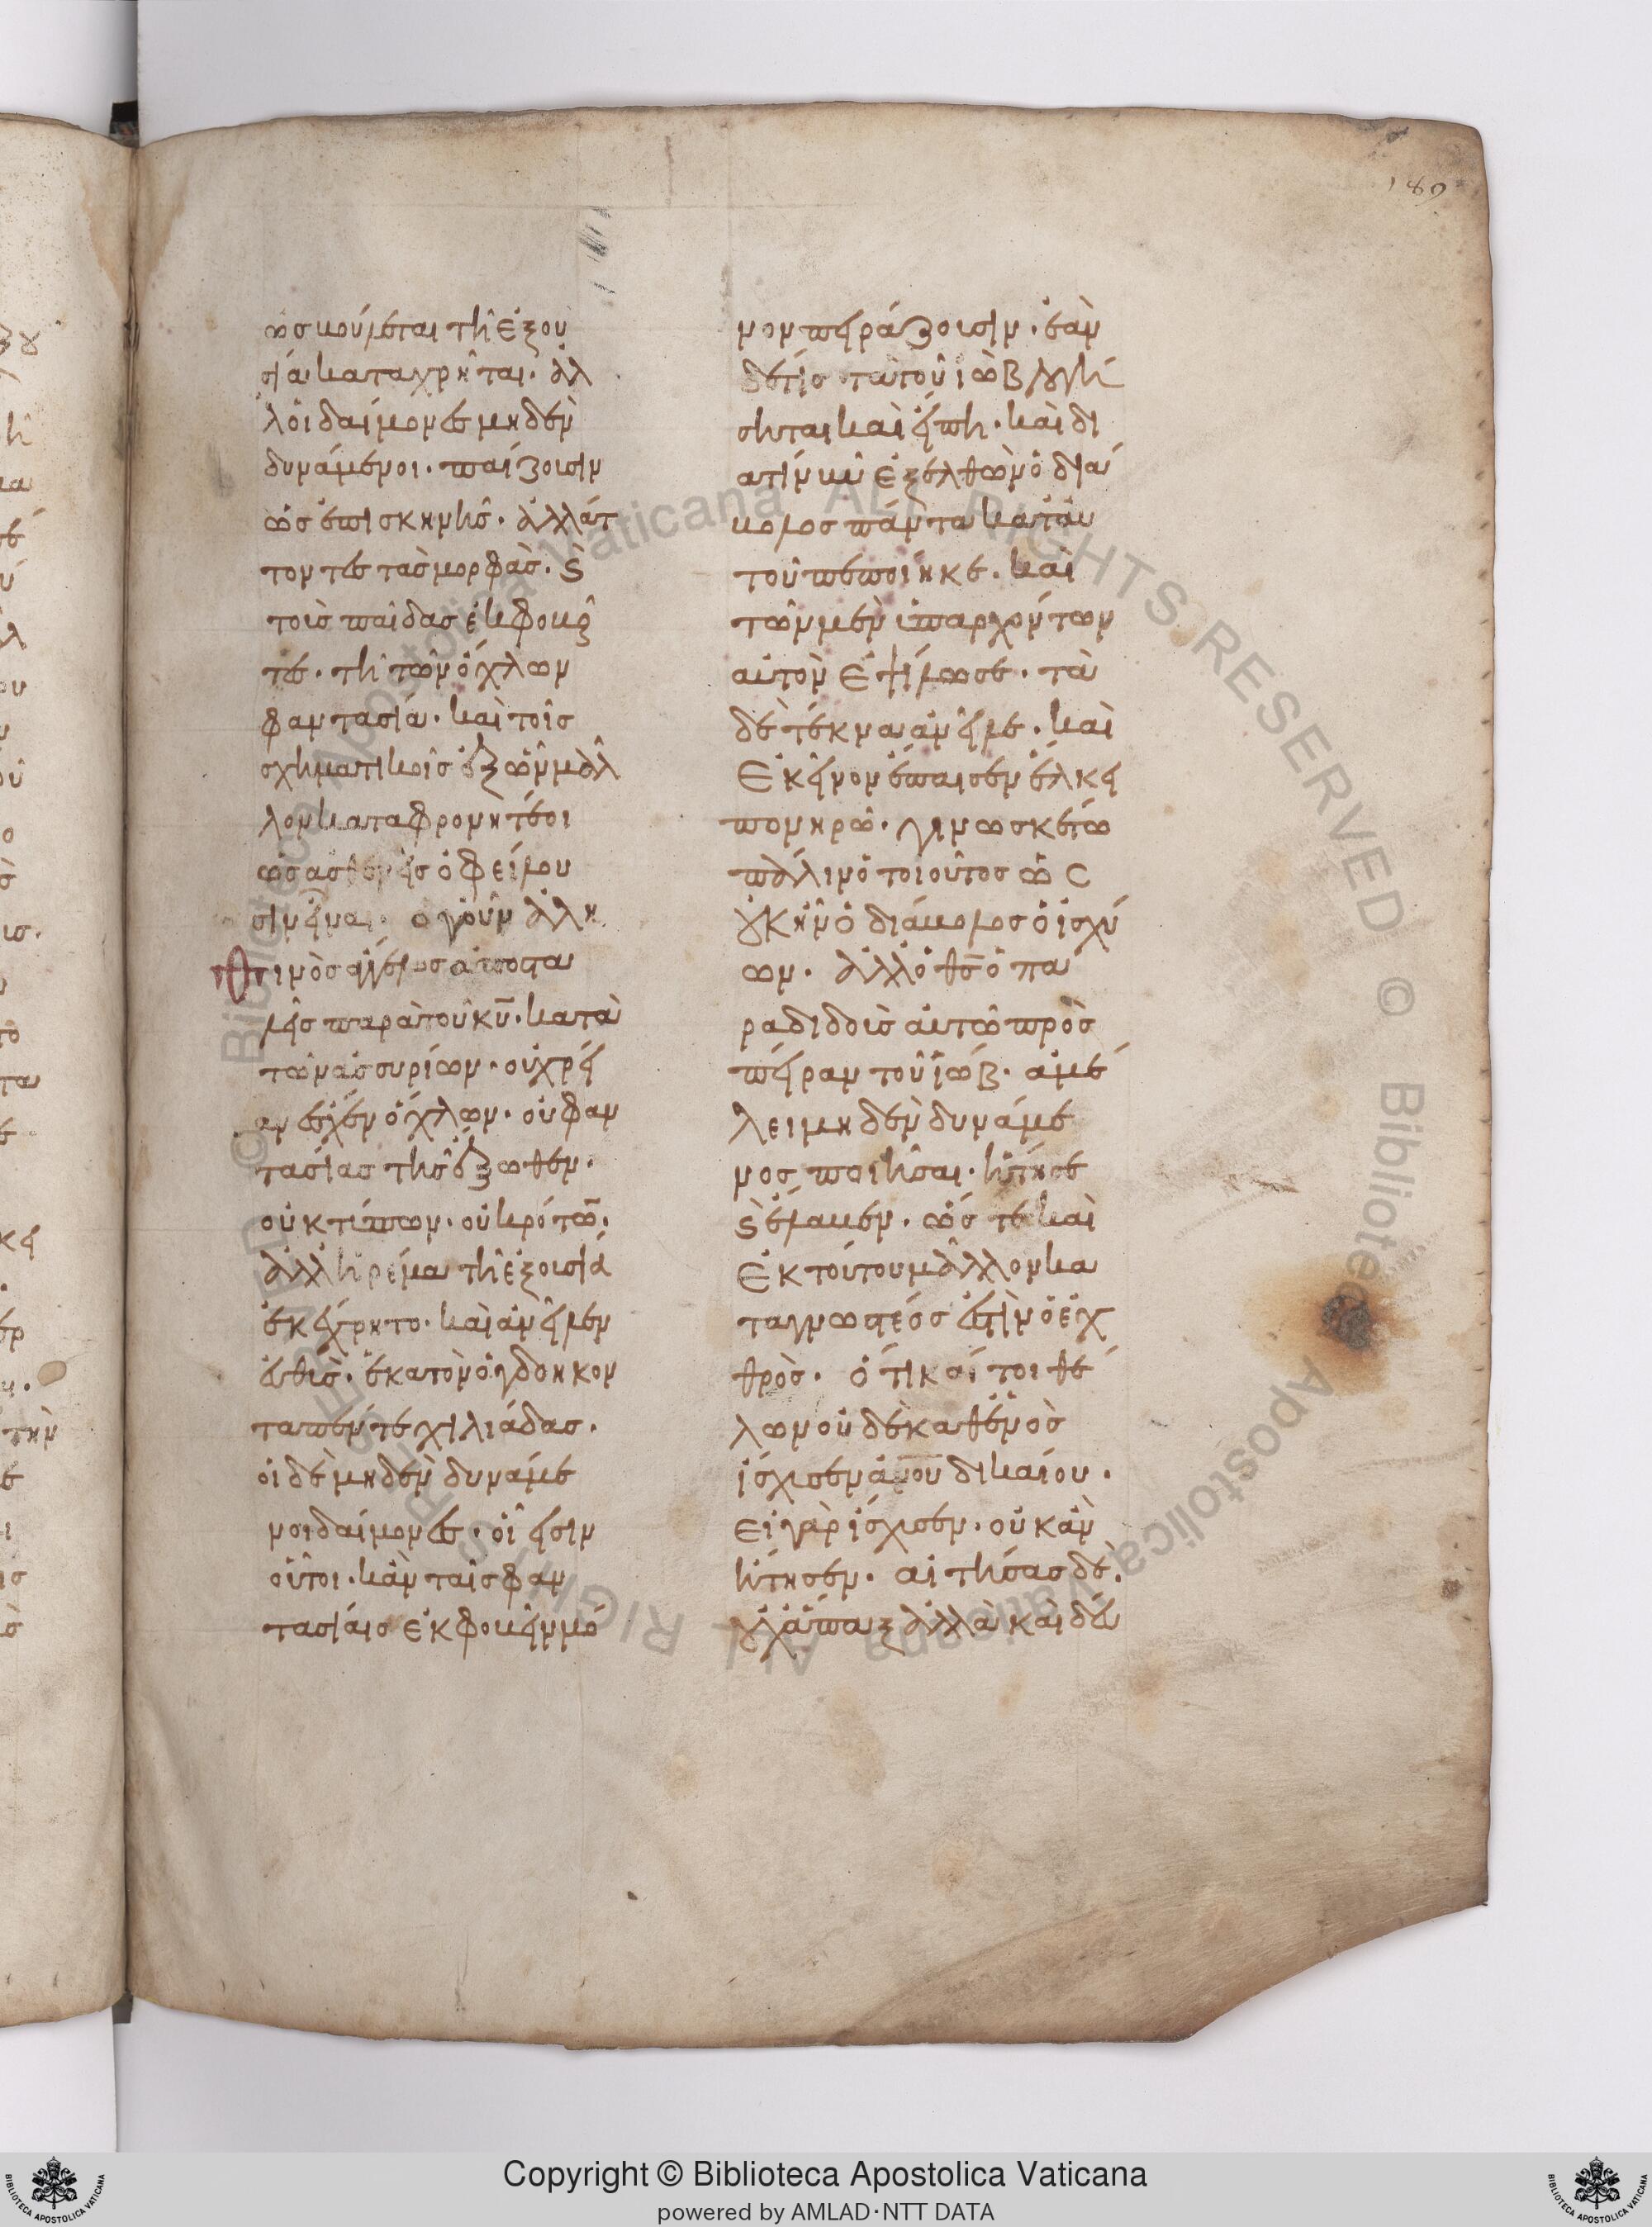 189
ὡσ κούγεται τῆ ἐξου
σία καταχρῆται. ἀλ
λ' οἱ δαίμονες μηδὲν
δυνάμενοι. παίζουσιν
ὡς ἐπι σκηνῆς. ἀλλάτ
τοντες τὰς μορφὰς. ϛ̀
τοὺς παῖδας ἐκφοβοῦν
τες. τῆ τῶν ὄχλων
φαντασία. καὶ τοῖς
σχηματισμοῖς ἐξ ὧν μᾶλ
λον καταφρονητέοι
ὡς ασθενεῖς ὀφείλου
σιν εἶναι. ὁ γοῦν ἀλη
θινὸς ἄγγελος ἀποστα
λεὶς παρὰ τοῦ κ̅υ̅. κατὰ
τῶν ἀσσυρίων. οὐ χρεί
αν ἔσχεν ὄχλων. οὐ φαν
τασίας τῆς ἔξωθεν.
οὐ κτύπων. οὐ κρότω̅.
ἀλλ' ἠρέμα τῆ ἐξουσία
ἐκέχρητο. καὶ ἀνεῖλεν
εὐθὺς. ἑκατὸν ὀγδοήκον
τα πέντε χιλιάδας.
οἱ δὲ μηδὲν δυνάμε
νοι δαίμονες. οἷοι εἰσιν
οὗτοι. κἂν ταῖς φαν
τασίαις ἐκφοβεῖν μό
νον πειράζουσιν. ἐὰν
δέ τις τὰ τοῦ ἰὼβ διηγή
σηται καὶ εἴπη. καὶ δι
ατί νῦν ἐξελθὼν ὁ διά
βολος πάντα κατ' αὐ
τοῦ πεποίηκε. καὶ
τῶν μὲν ὑπαρχόντων
αὐτὸν ἐψίλωσε. τὰ
δὲ τέκνα ἀνεῖλε. καὶ
ἐκεῖνον ἔπαισεν ἕλκει
πονηρῶ. γινωσκέτω
πάλιν ὁ τοιοῦτος ὡς
οὐκ ἦν ὁ διάβολος ὁ ἰσχύ
ων. ἀλλ' ὁ θ̅ς̅ ὁ πα
ραδιδοὺς αὐτῶ πρὸς
πεῖραν τοῦ ἰώβ. ἀμέ
λει μηδὲν δυνάμε
νος ποιῆσαι. ἤτησε
ϛ̀ ἔλαβεν. ὥστε καὶ
ἐκ τούτου μᾶλλον κα
ταγνωστέος ἐστὶν ὁ ἐχ
θρὸς. ὅτι καί τοι θέ
λων οὐδὲ καθ' ἑνὸς
ἴσχυσεν ἀ̅ν̅ο̅υ̅ δικαίου.
εἰ γὰρ ἴσχυσεν. οὐκ ἂν
ἤτησεν. αἰτήσας δὲ.
οὐχ ἅπαξ ἀλλὰ καὶ δεύ
Copyright © Biblioteca Apostolica Vaticana
powered by AMLAD·NTT DATA